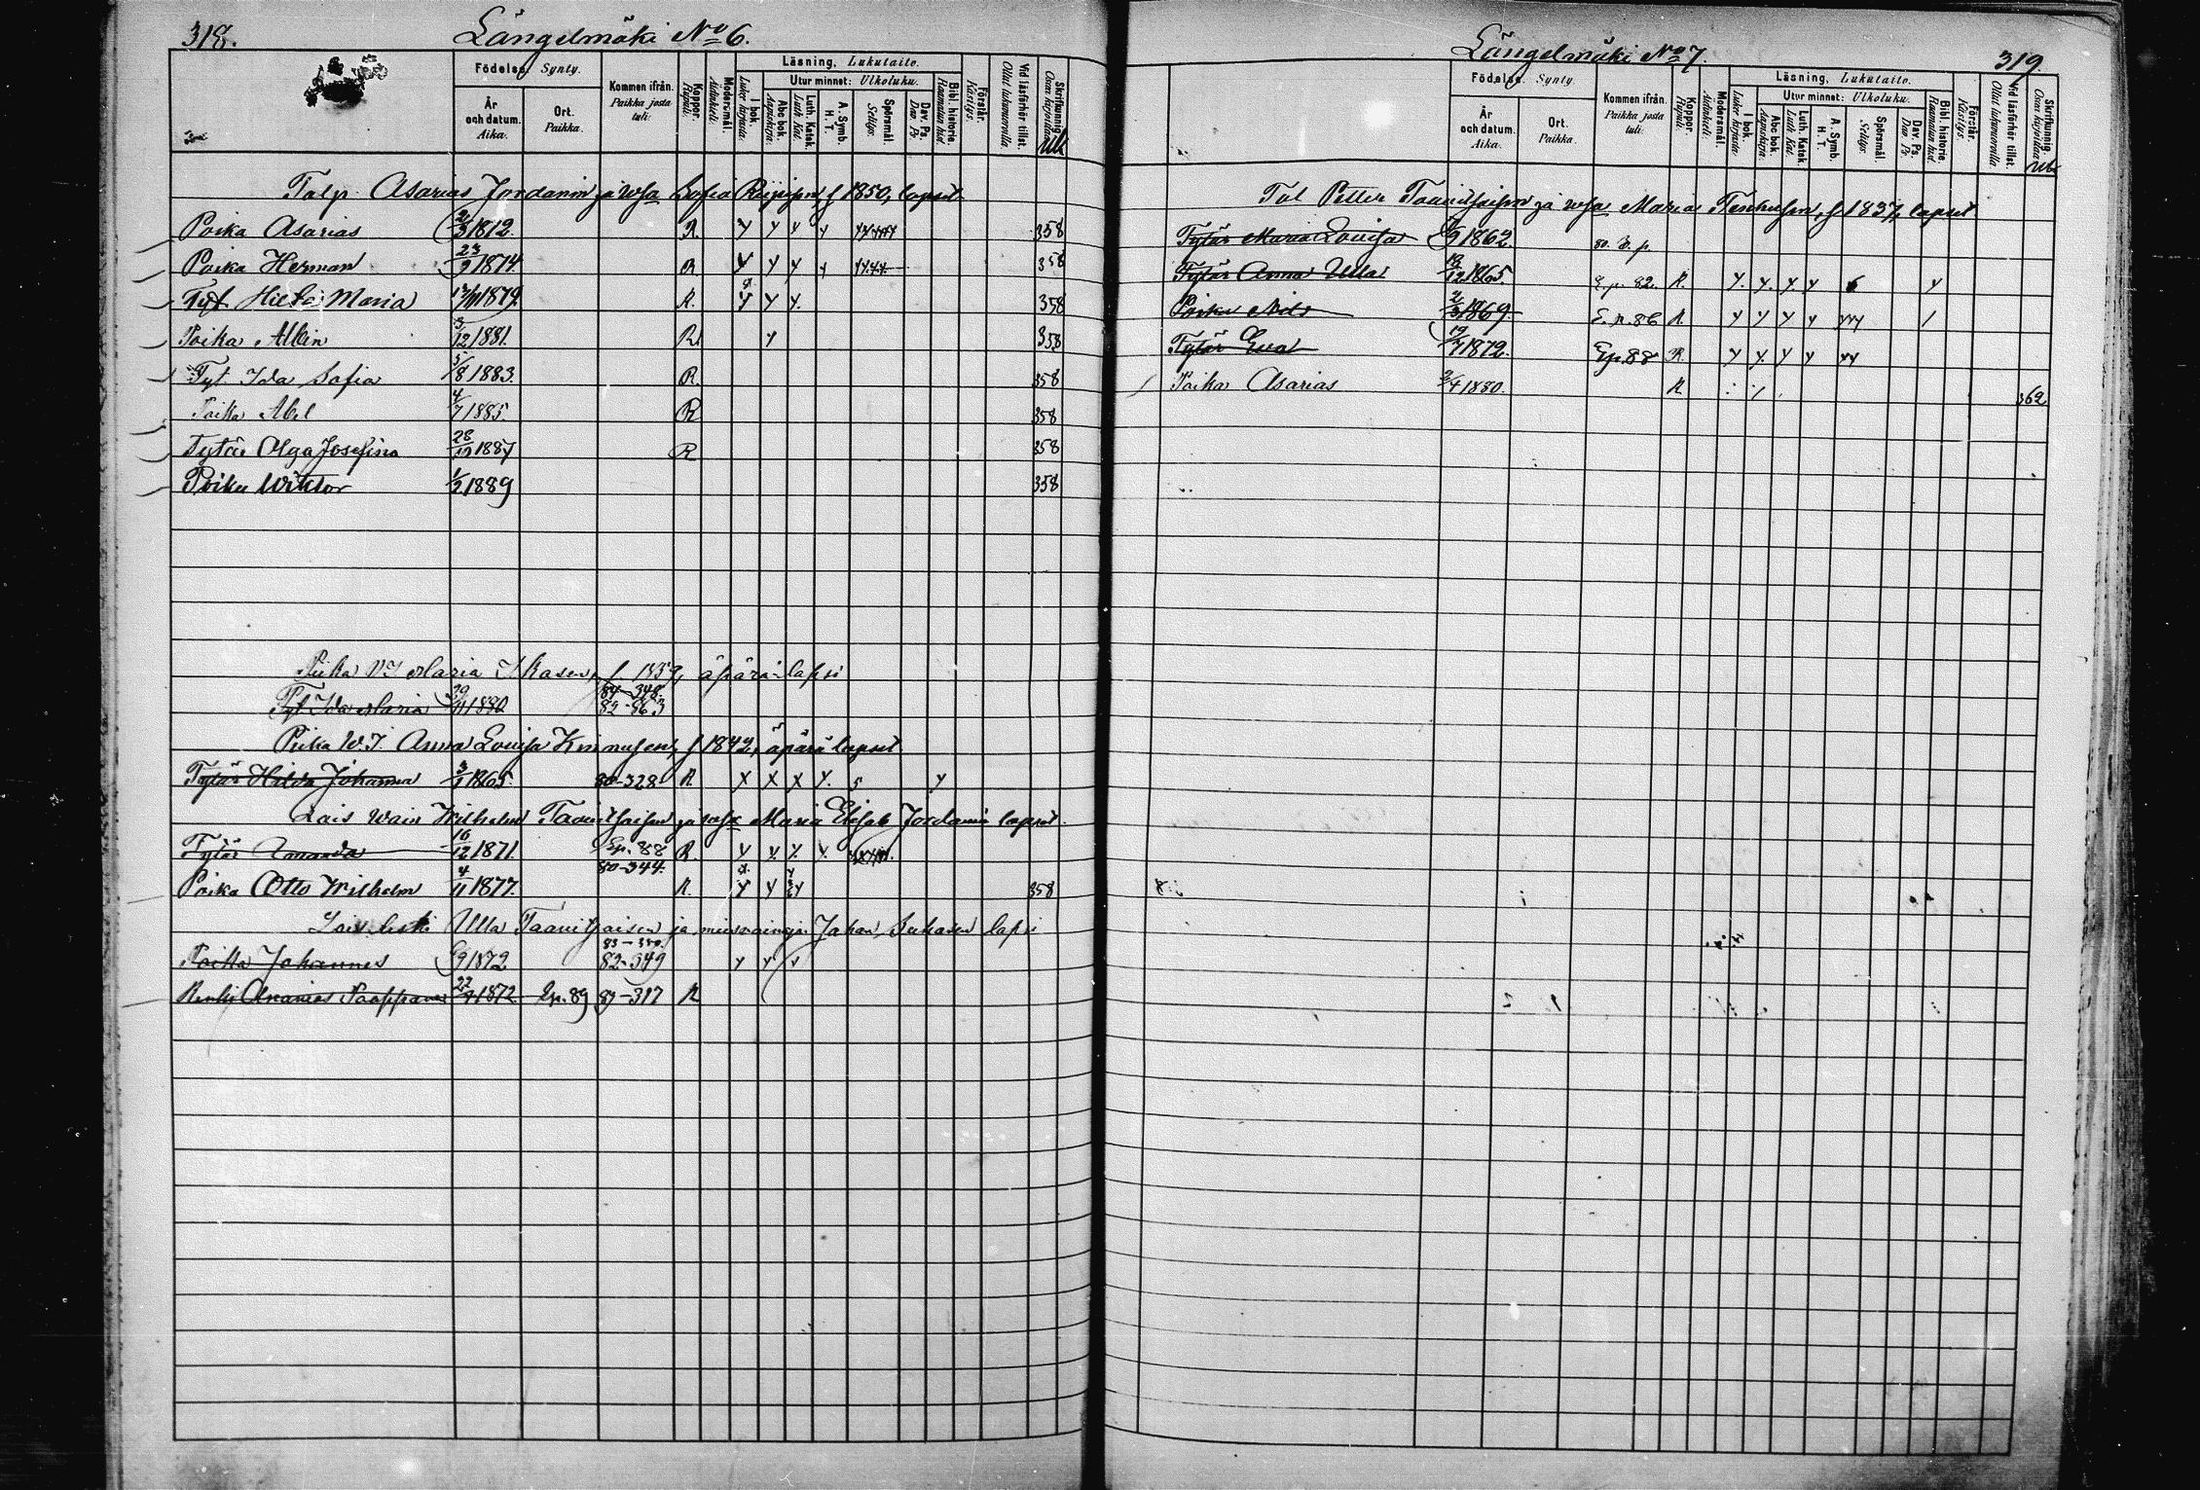 318.
Längelmäki No 6.
Födelse. Synty.
År och datum. Aika.
Ort. Paikka.
Kommen ifrån. Paikka josta tuli.
Koppor. Rupuli.
Modersmål. Äidinkieli.
Läsning, Lukutaito.
I bok. Lukee kirjasta.
Utur minnet: Ulkoluku.
Abc bok. Aapiskirja.
Luth. Katek. Luth. Kat.
A. Symb. H. T.
Spörsmål. Selitys.
Dav. Ps. Dav. Ps.
Bibl. historie. Raamatun hist.
Förstår. Käsitys.
Vid läsförhör tillst. Ollut lukuvuorolla
Skrifkunnig. Osaa kirjoittaa
Talp. Asarias Jordanin ja vsa Sofia f 1850, lapset
Poika Asarias 2/3 1872. R. y y y y 358
Poika Herman 23/9 1874. R y y y y 358
Tyt. Hilda Maria 1879. R. y y y. 358
Poika Albin 3/12 1881. R. y 358
Tyt. Ida Sofia 5/8 1883. R. 358
Poika Abel 4/7 1885. R 358
Tytär Olga Josefina 28/12 1887 R 358
Poika Wiktor 1/2 1889 358
Piika Maria Ikasen, f. äpärä lapsi
84-348.
Tyt. Ida Maria 82-363
Piika W.J. Anna Louisa Kinnusen, f 1842, äpärä lapset
Tytär Hilda Johanna 3/1 1865. 80-328 R. X X X y. 5 y
Lais Wain Wilhelm Taavitsaisen ja vsa Maria Elisab Jordanin lapset.
Tytär Amanda 16/12 1871. Ep. 88 R. y y. y. y.
80-344.
Poika Otto Wilhelm 4/11 1877. R. y y y 358
Lois. leski Ulla Taavitsaisen ja miesvainaja Johan Suhasen lapsi
83-350.
Poika Johannes 9 1872 82-349 y y y
Renki Ananias Paappanen 27/9 1872 Ep. 89 89-317 R
Längelmäki No 7.
319.
Födelse. Synty.
År och datum. Aika.
Ort. Paikka.
Kommen ifrån. Paikka josta tuli.
Koppor. Rupuli.
Modersmål. Äidinkieli.
Läsning, Lukutaito.
I bok. Lukee kirjasta.
Utur minnet: Ulkoluku.
Abc bok. Aapiskirja.
Luth. Katek. Luth. Kat.
A. Symb. H. T.
Spörsmål. Selitys.
Dav. Ps. Dav. Ps.
Bibl. historie. Raamatun hist.
Förstår. Käsitys.
Vid läsförhör tillst. Ollut lukuvuorolla
Skrifkunnig. Osaa kirjoittaa
Tal Petter Taavitsaisen ja vsa Maria Tenhusen, f 1837, lapset
Tytär Maria Lovisa 1862. 80. p.
Tytär Anna Ulla 1865. Ep. 82. R. y. y. y. y 6 y
Poika Nils 2/3 1869 E.p. 86 R. y y y y yyy /
Tytär Eva 19/7 1872. Ep. 88 R. y y. y y yy
Poika Asarias 2/4 1880. R 362